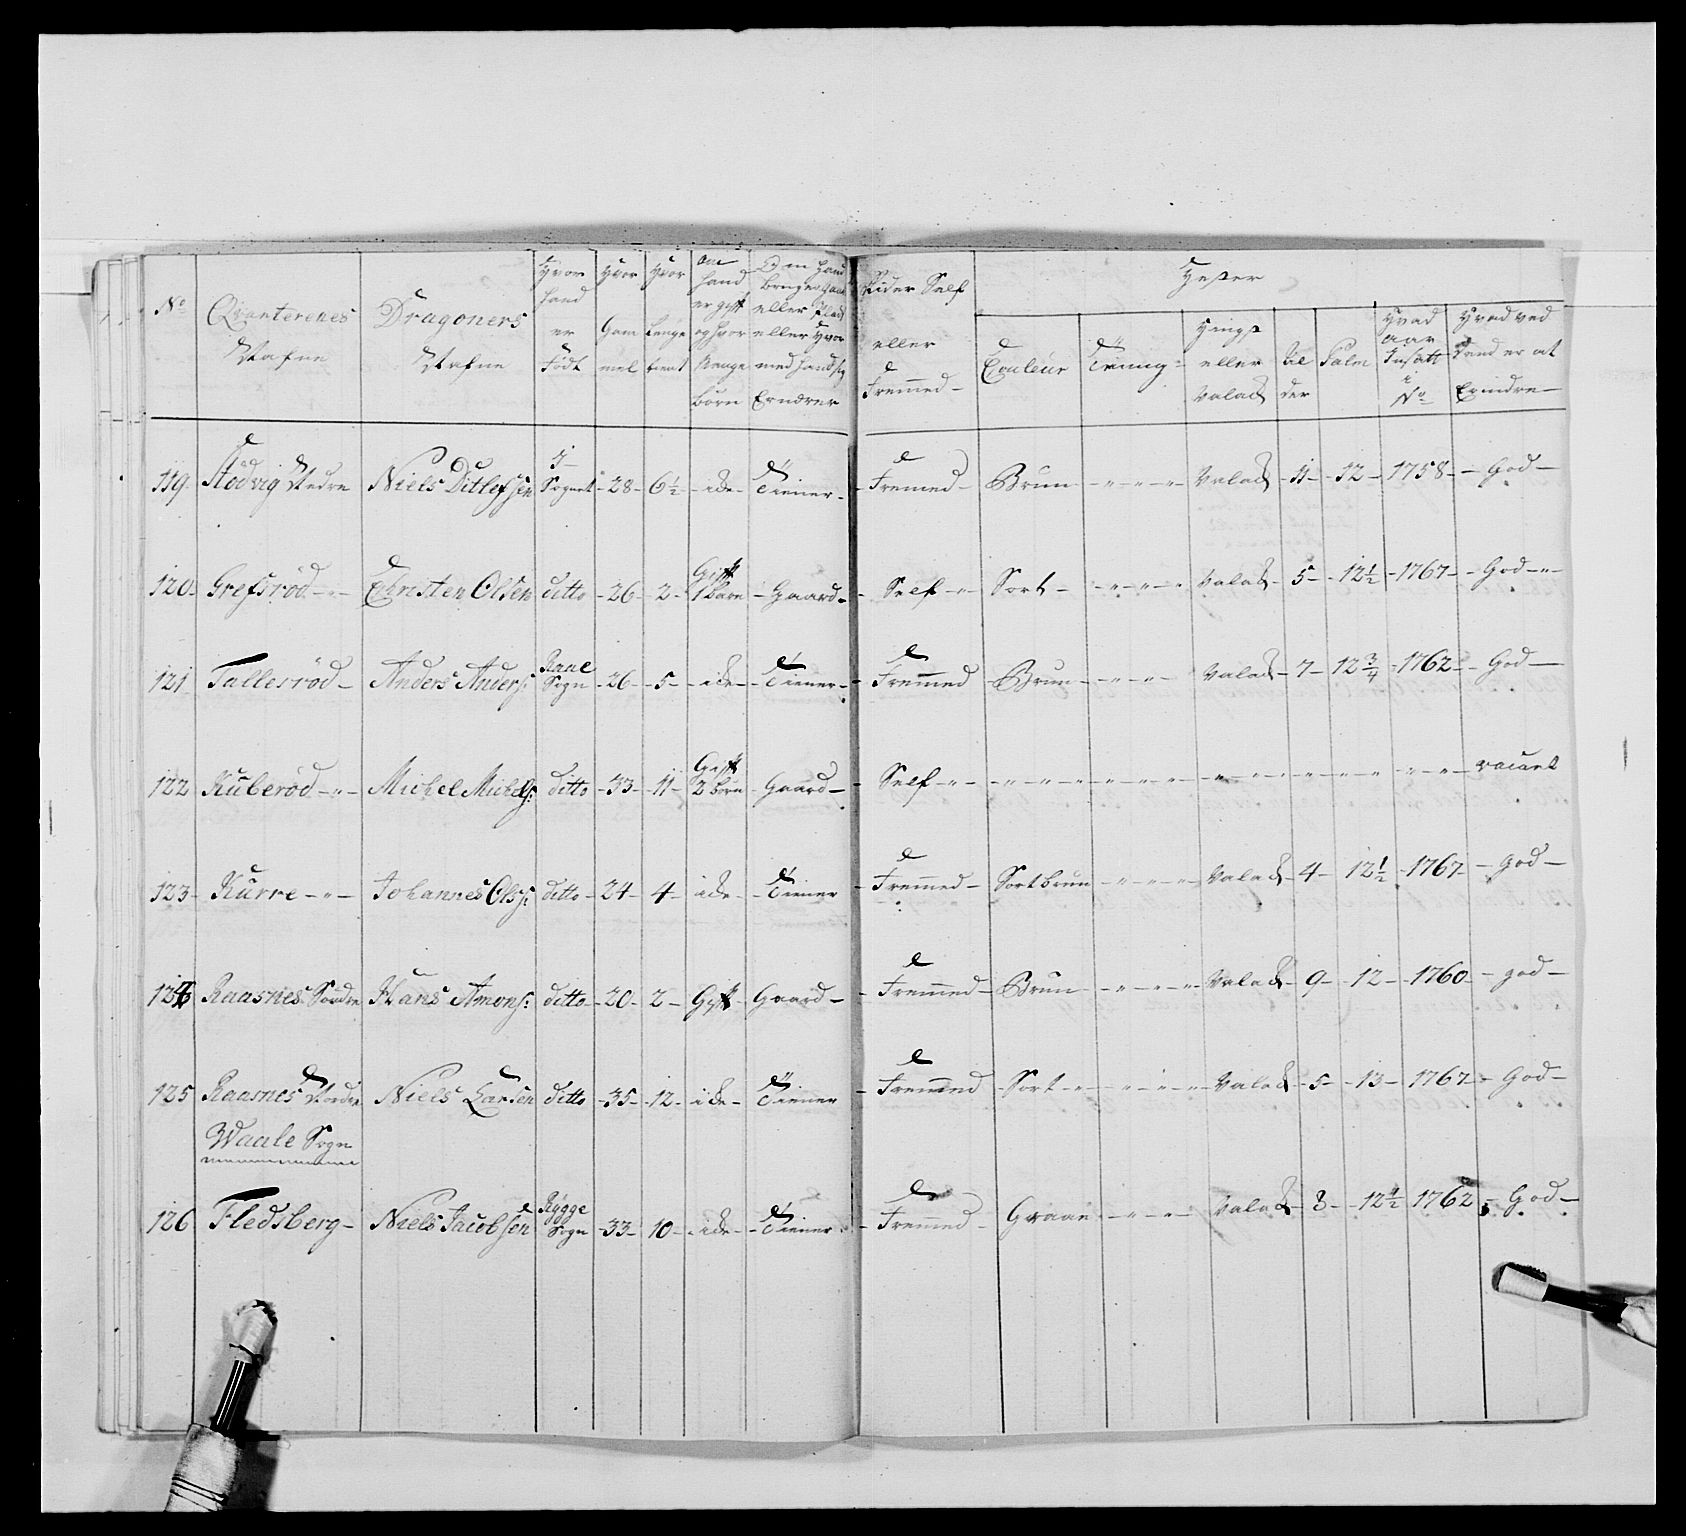 No
Qvarterenes Nafne
Dragoners Nafne
Hvor hand er Född
Hvor Gammel
Hvor Længe tient
Om hand er gift og hvor Mange børn
Om hand bruger Gaard eller Plads eller Hvormed hand sig Ernærer
Rider Self eller Fremmed
Hester
Couleur
Teing
Hingst eller Valack
Alder
Palm
Hvad Aar Indsatt i No
Hvad ved dend er at Erindre
119 Stødvig Nedre Niels Ditlefsen I Sognet 28 6½ ide Tiener Fremed Brun Valack 11 12 1758 God
120 Grefsrød Christen Olsen ditto 26 2 Gift 1 barn Gaard Self Sort Valack 5 12½ 1767 God
121 Tallesrød Anders Anders: Raae Sogn 26 5 ide Tiener Fremmed Brun Valack 7 12¾ 1762 God
122 Kuberød Michel Michels: ditto 33 11 Gift 2 børn Gaard Self vacant
123 Kurre Johannes Ols: ditto 24 4 ide Tiener Fremmed Sortbrun Valack 4 12½ 1767 God
124 Raasnes Søndre Hans Amons: ditto 20 2 Gift Gaard Fremmed Brun Valack 9 12 1760 god
125 Raasnes Nordre Niels Larsen ditto 35 12 ide Tiener Fremmed Sort Valack 5 13 1767 God
Waale Sogn
126 Fledsberg Niels Jacobsen Rygge Sogn 33 10 ide Tiener Fremmed Graae Valack 8 12½ 1762 God